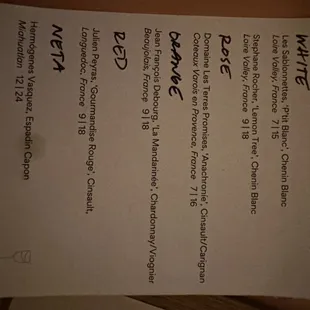 WHITE
Les Sablonnettes, 'P'tit Blanc', Chenin Blanc
Loire Valley, France 7|15
Stephane Rocher, 'Lemon Tree', Chenin Blanc
Loire Valley, France 9|18
ROSE
Domaine Les Terres Promises, 'Anachronie', Cinsault/Carignan
Coteaux Varois en Provence, France 7|16
ORANGE
Jean François Debourg, 'La Mandarinée', Chardonnay/Viognier
Beaujolais, France 9|18
RED
Julien Peyras, 'Gourmandise Rouge', Cinsault,
Languedoc, France 9|18
NETA
Hermógenes Vasquez, Espadín Capon
Miahuatlan 12|24